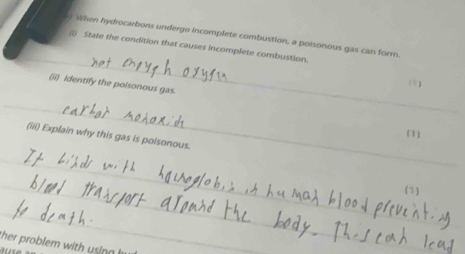 When hydrocarbons undergo incomplete combustion, a poisonous gas can form.
(i) State the condition that causes incomplete combustion.
not enough oxygen
(1)
(ii) Identify the poisonous gas.
carbon monoxide
(1)
(iii) Explain why this gas is poisonous.
(1)
It binds with haemoglobin in human blood preventing
blood transport around the body. This can lead
to death.
her problem with using